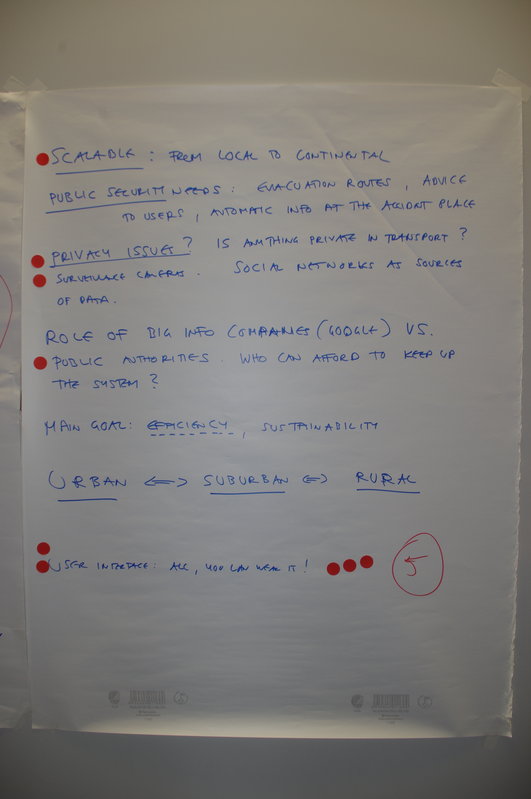 SCALABLE : FROM LOCAL TO CONTINENTAL
PUBLIC SECURITY NEEDS : EVACUATION ROUTES, ADVICE
TO USERS, AUTOMATIC INFO AT THE ACCIDNT PLACE
PRIVACY ISSUES? IS ANYTHING PRIVATE IN TRANSPORT?
SURVEILLANCE CAMERAS. SOCIAL NETWORKS AS SOURCES
OF DATA.
ROLE OF BIG INFO COMPANIES (GOOGLE) VS.
PUBLIC AUTHORITIES. WHO CAN AFFORD TO KEEP UP
THE SYSTEM?
MAIN GOAL: EFFICIENCY, SUSTAINABILITY
URBAN <=> SUBURBAN <=> RURAL
USER INTERFACE: ALL, YOU CAN WEAR IT!
5